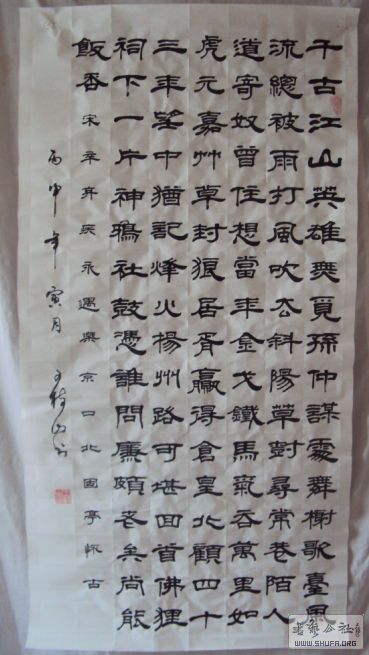 千古江山英雄無覓孫仲謀處舞榭歌臺風
流總被雨打風吹去斜陽草對尋常巷陌人
道寄奴曾住想當年金戈鐵馬氣吞萬里如
虎元嘉艸草封狼居胥贏得倉皇北顧四十
三年望中猶記烽火楊州路可堪回首佛狸
祠下一片神鴉社鼓憑誰問廉頗老矣尚能
飯否 宋辛弃疾永遇樂京口北固亭怀古
丙申年寅月
WWW.SHUFA.ORG